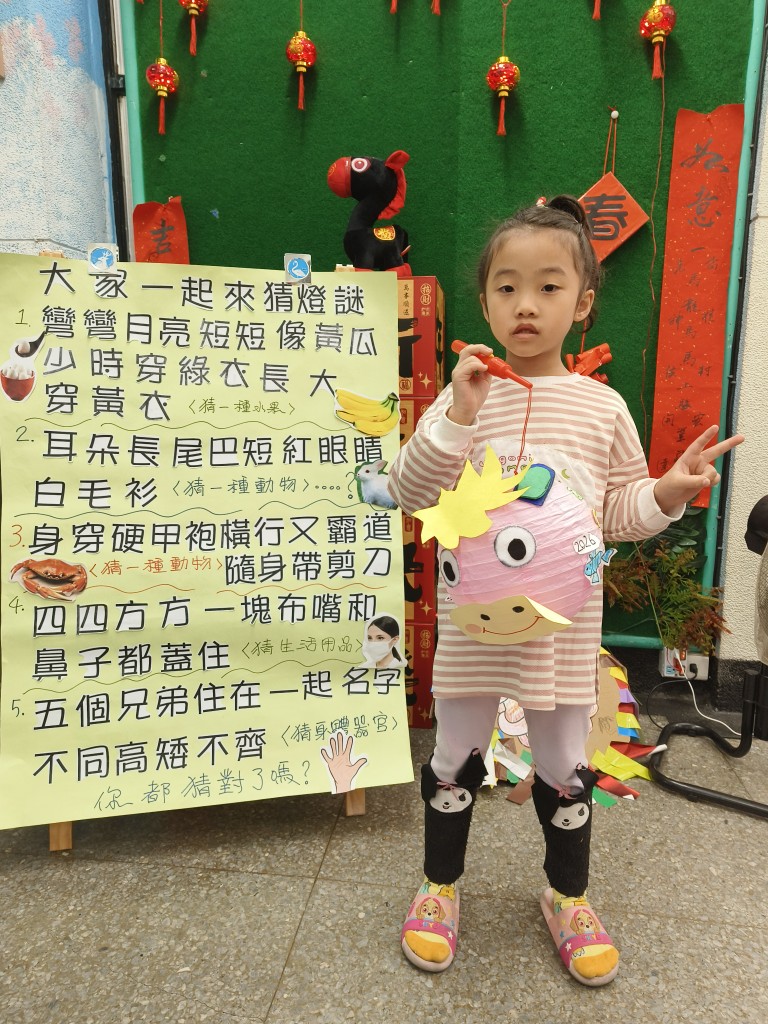 大家一起來猜燈謎
1. 彎彎月亮短短像黃瓜
少時穿綠衣長大
穿黃衣〈猜一種水果〉
2. 耳朵長尾巴短紅眼睛
白毛衫〈猜一種動物〉‥‥?
3. 身穿硬甲袍橫行又霸道
〈猜一種動物〉隨身帶剪刀
4. 四四方方一塊布嘴和
鼻子都蓋住〈猜生活用品〉
5. 五個兄弟住在一起名字
不同高矮不齊〈猜身體器官〉
你都猜對了嗎?
吉
春
如意
2026